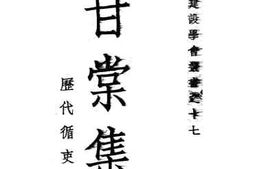 建設學會叢書之十七
甘棠集
歷代循吏